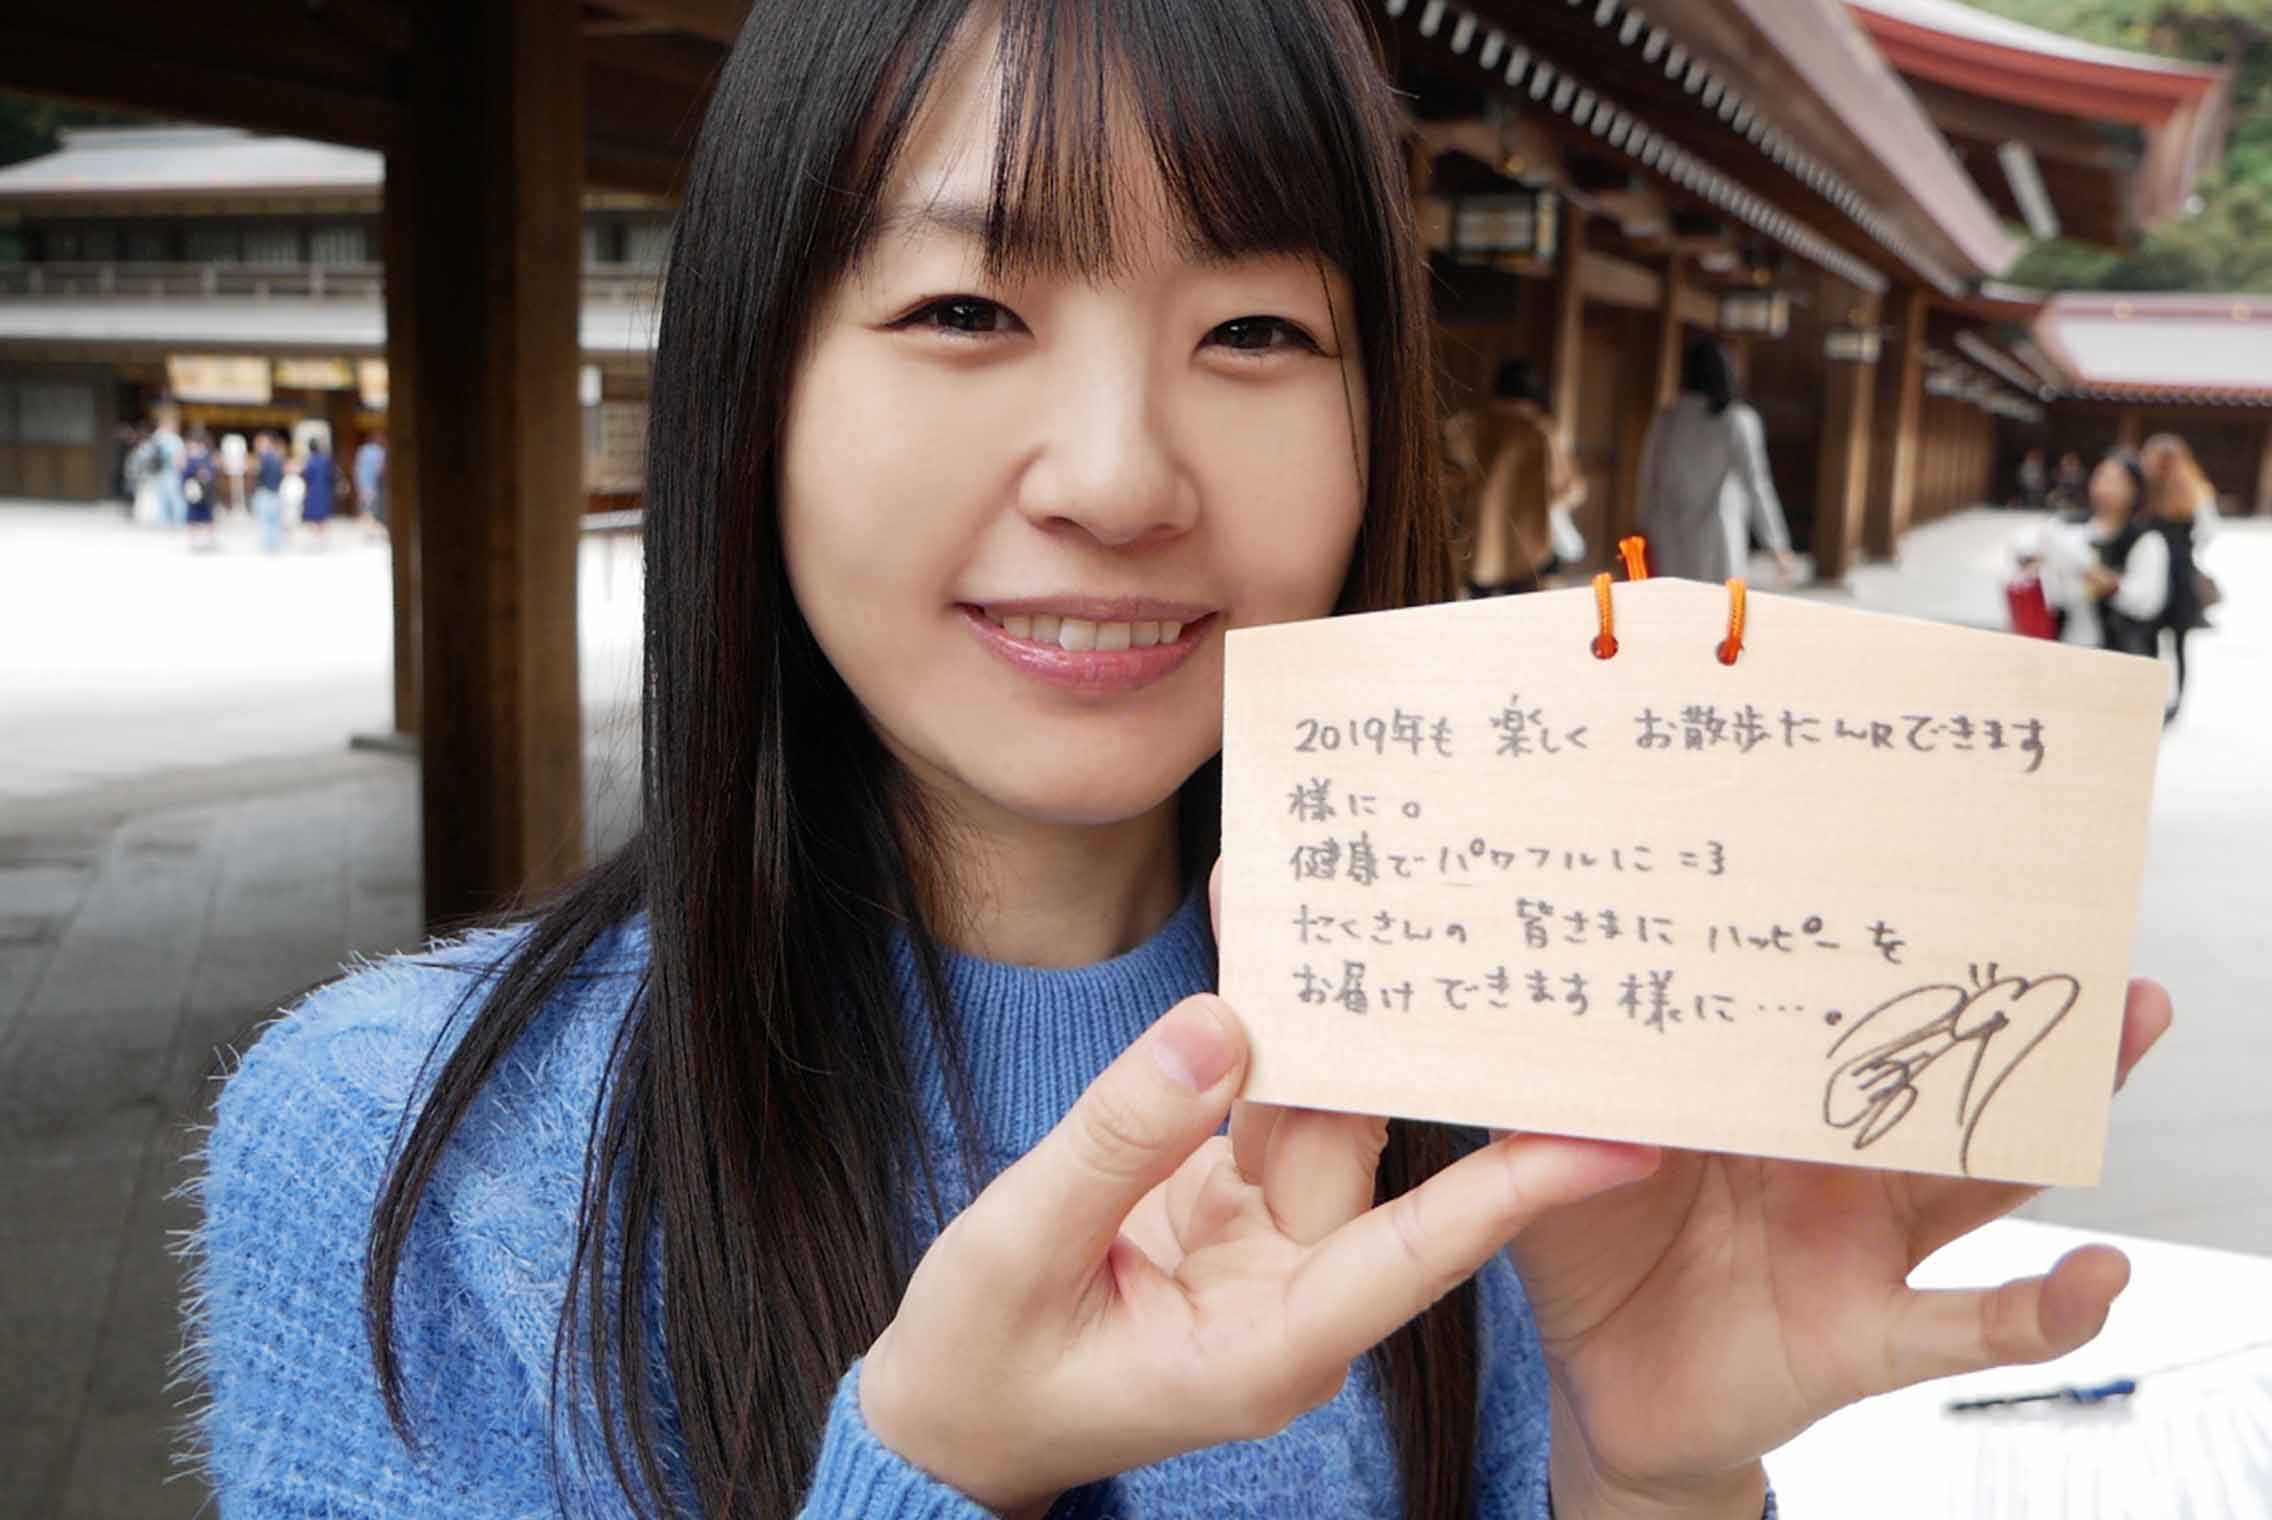 2019年も 楽しく お散歩たんけんできます
様に。
健康でパワフルに=3
たくさんの 皆さまに ハッピーを
お届けできます様に…。